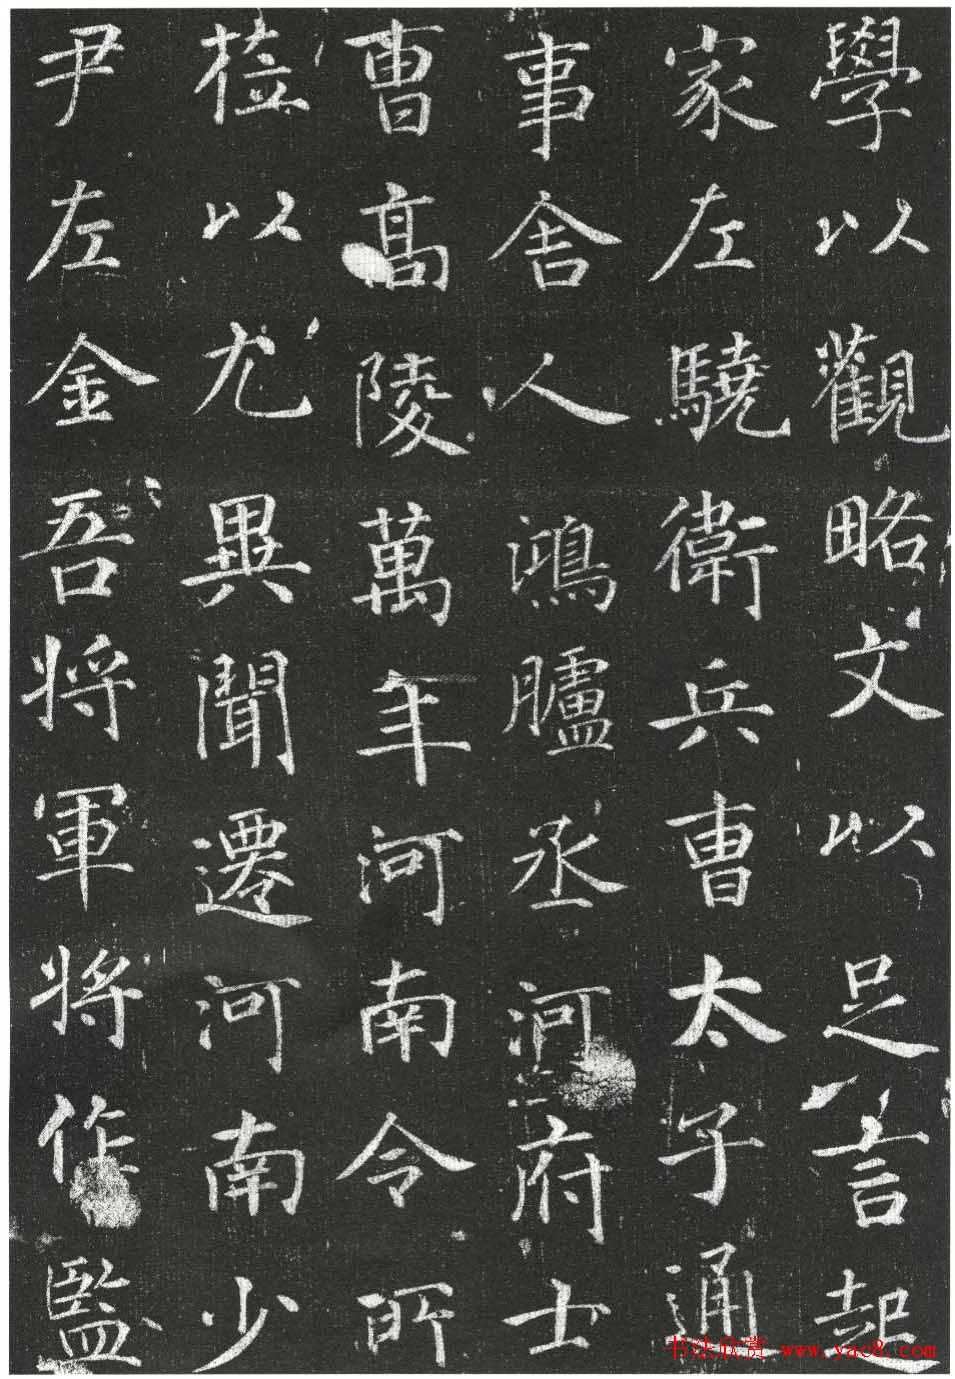 學以觀略文以足言起
家左驍衛兵曹太子通
事舍人鴻臚丞河府士
曹高陵萬年河南令所
莅以尤異聞遷河南少
尹左金吾將軍將作監
书法欣赏 www.yac8.com